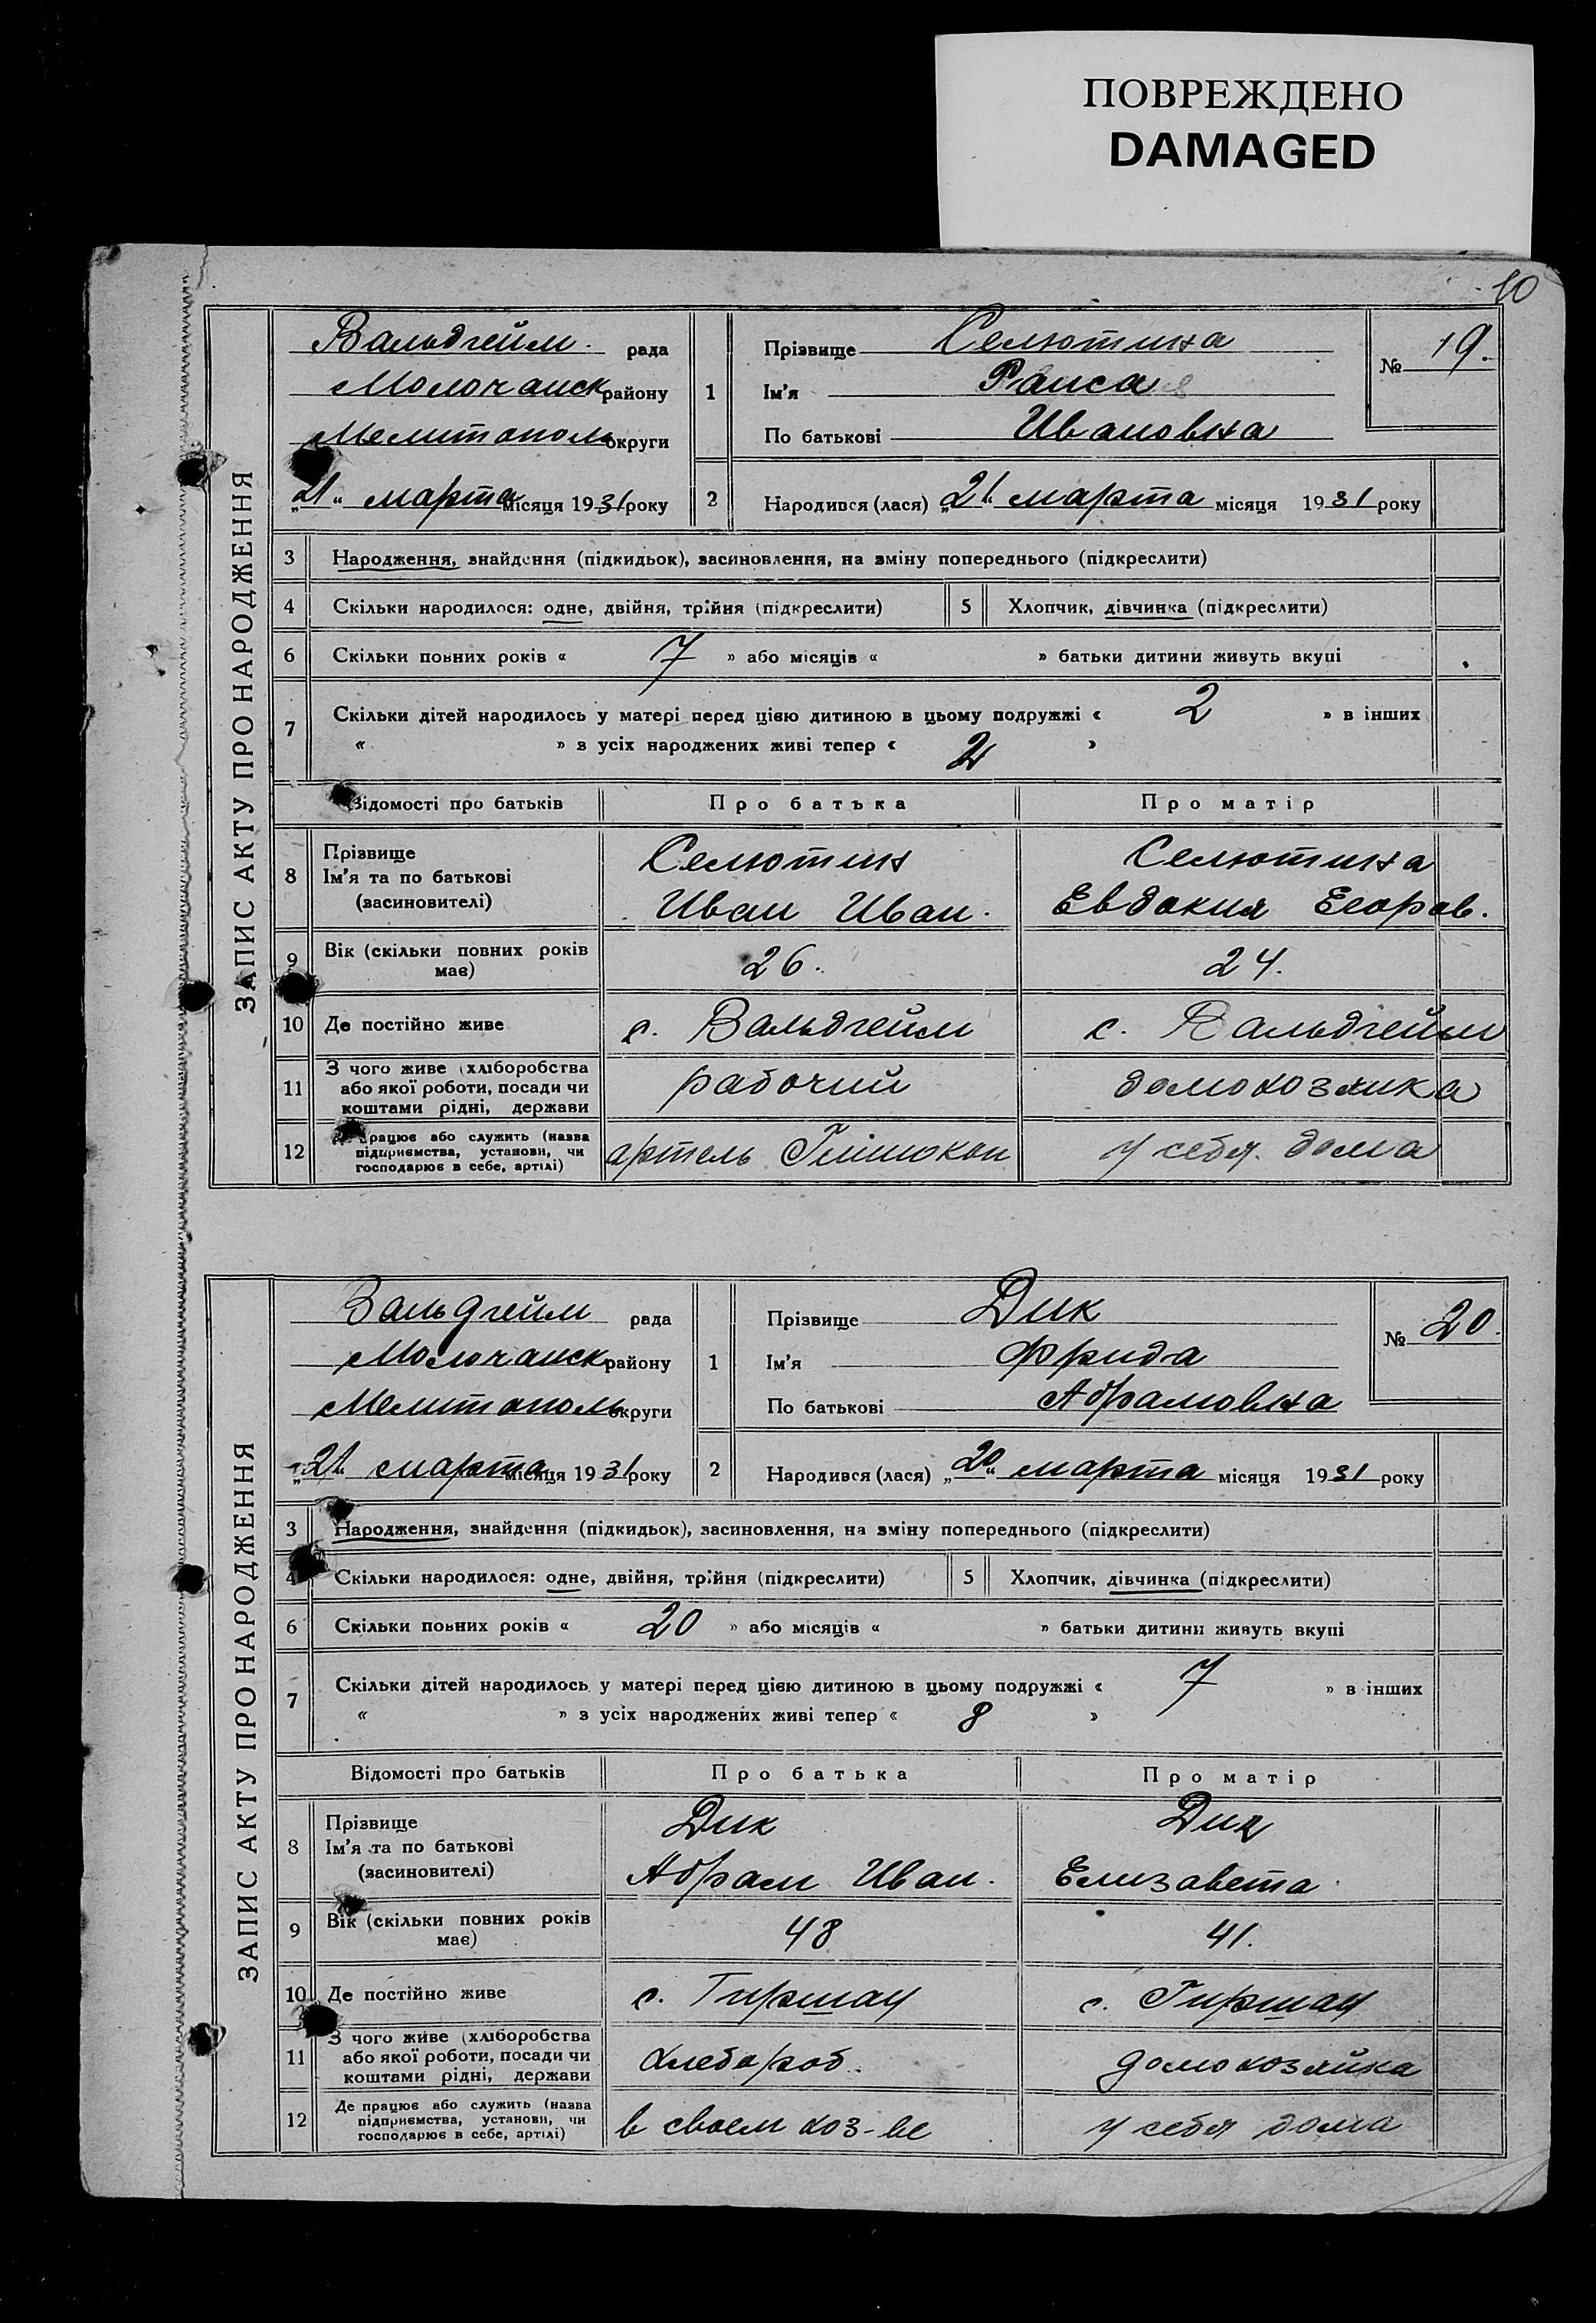 ПОВРЕЖДЕНО
DAMAGED
10
ЗАПИС АКТУ ПРО НАРОДЖЕННЯ
Вальдгейм. рада
Молочанск району
Мелитополь округи
„21“ марта місяця 1931 року
1 Прізвище Селютина
Ім'я Раиса
По батькові Ивановна
№ 19.
2 Народився (лася) „21“ марта місяця 1931 року
3 Народження, знайдення (підкидьок), засиновлення, на зміну попереднього (підкреслити)
4 Скільки народилося: одне, двійня, трійня (підкреслити) 5 Хлопчик, дівчинка (підкреслити)
6 Скільки повних років « 7 » або місяців « » батьки дитини живуть вкупі
7 Скільки дітей народилось у матері перед цією дитиною в цьому подружжі « 2 » в інших
« » з усіх народжених живі тепер « »
Відомості про батьків Про батька Про матір
8 Прізвище Ім'я та по батькові (засиновителі)
Селютин Селютина
Иван Иван. Евдокия Егоров.
9 Вік (скільки повних років має) 26. 24.
10 Де постійно живе с. Вальдгейм с. Вальдгейм
11 З чого живе (хліборобства або якої роботи, посади чи коштами рідні, держави рабочий домохозяика
12 працює або служить (назва підприємства, установи, чи господарює в себе, артілі) артель у себя дома
ЗАПИС АКТУ ПРО НАРОДЖЕННЯ
Вальдгейм рада
Молочанск району
Мелитополь округи
„21“ марта місяця 1931 року
1 Прізвище Дик
Ім'я Фрида
По батькові Абрамовна
№ 20.
2 Народився (лася) „20“ марта місяця 1931 року
3 Народження, знайдення (підкидьок), засиновлення, на зміну попереднього (підкреслити)
4 Скільки народилося: одне, двійня, трійня (підкреслити) 5 Хлопчик, дівчинка (підкреслити)
6 Скільки повних років « 20 » або місяців « » батьки дитини живуть вкупі
7 Скільки дітей народилось у матері перед цією дитиною в цьому подружжі « 7 » в інших
« » з усіх народжених живі тепер « 8 »
Відомості про батьків Про батька Про матір
8 Прізвище Ім'я та по батькові (засиновителі)
Дик Дик
Абрам Иван. Елизавета
9 Вік (скільки повних років має) 48 41.
10 Де постійно живе с. Гиршау с. Гиршау
11 З чого живе (хліборобства або якої роботи, посади чи коштами рідні, держави хлебороб. домохозяйка
12 Де працює або служить (назва підприємства, установи, чи господарює в себе, артілі) в своем хоз-ве у себя дома